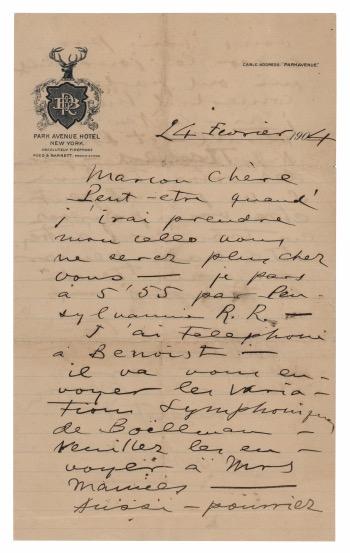 CABLE ADDRESS "PARKAVENUE"
PARK AVENUE HOTEL
NEW YORK.
ABSOLUTELY FIREPROOF
REED & BARNETT, PROPRIETORS
24 Fevrier 1904
Chère
Peut-etre quand
j'irai prendre
mon cello vous
ne serez plus chez
vous — je pars
à 5'55 par Pen-
sylvannia R.R. —
J'ai telephoné
à Benoist —
il va vous en-
voyer les Varia-
tions Symphoniques
de Boëllman —
veuillez les en-
voyer à Mrs
Aussi — pourriez